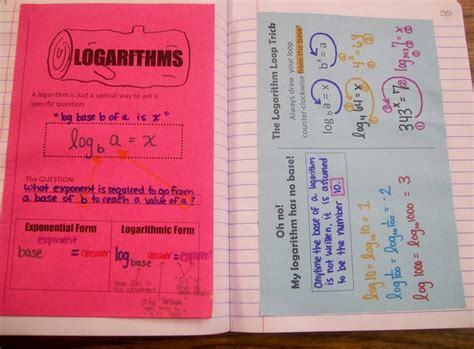 LOGARITHMS
A logarithm is just a special way to ask a
specific question.
"log base b of a is x"
log_b a = x
The QUESTION:
What exponent is required to go from
a base of b to reach a value of a?
Exponential Form
Logarithmic Form
exponent
base = answer
log base answer = exponent
The Logarithm Loop Trick
Always draw your loop
counter-clockwise from the base!
log_b a = x b^x = a
log_4 64 = x 4^x = 64
343^x = 7 log_343 7 = x
Oh no!
My logarithm has no base!
Anytime the base of a logarithm
is not written, it is assumed
to be the number 10.
log 10 = log_10 10 = 1
log 1/100 = log_10 1/100 = -2
log 1000 = log_10 1000 = 3